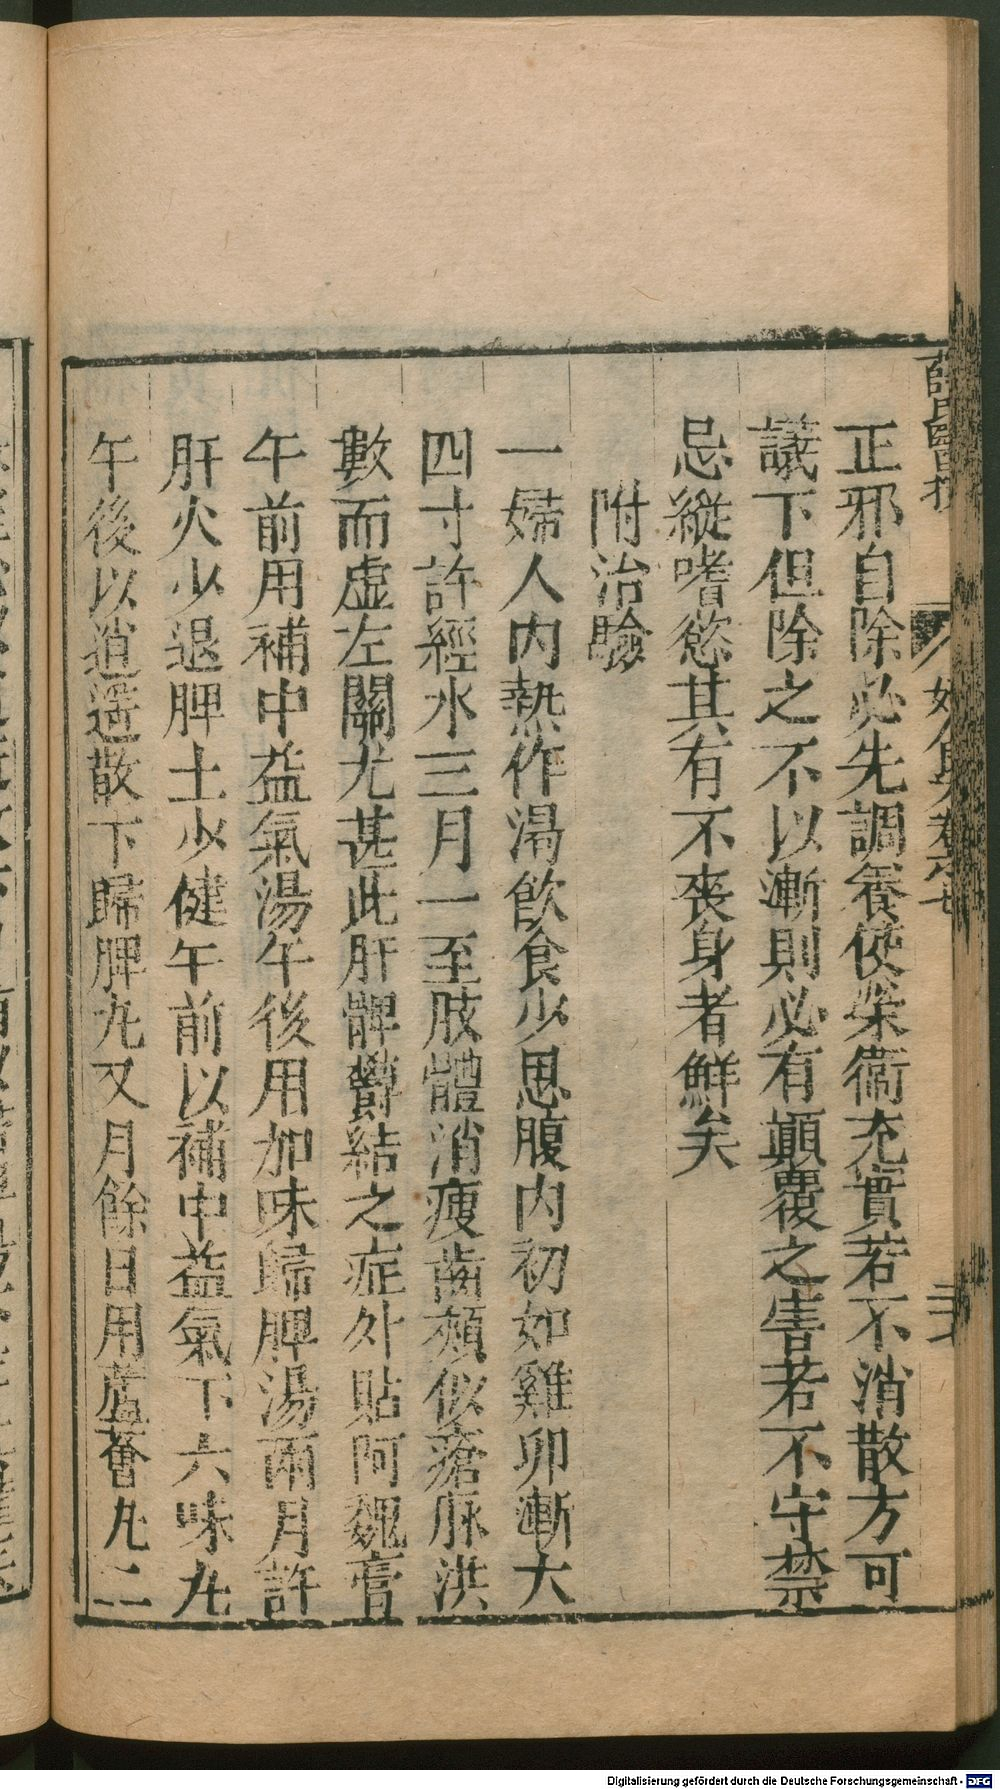 正邪自除必先調養使榮衞充實若不消散方可
議下但除之不以漸則必有顚覆之害若不守禁
忌縱嗜慾其有不喪身者鮮矣
附治驗
一婦人内熱作渴飲食少思腹内初如雞卵漸大
四寸許經水三月一至肢體消瘦齒頰似瘡脉洪
數而虚左關尤甚此肝脾鬱結之症外貼阿魏膏
午前用補中益氣湯午後用加味歸脾湯兩月許
肝火少退脾土少健午前以補中益氣下六味丸
午後以逍遥散下歸脾丸又月餘日用蘆薈丸二
Digitalisierung gefördert durch die Deutsche Forschungsgemeinschaft - DFG